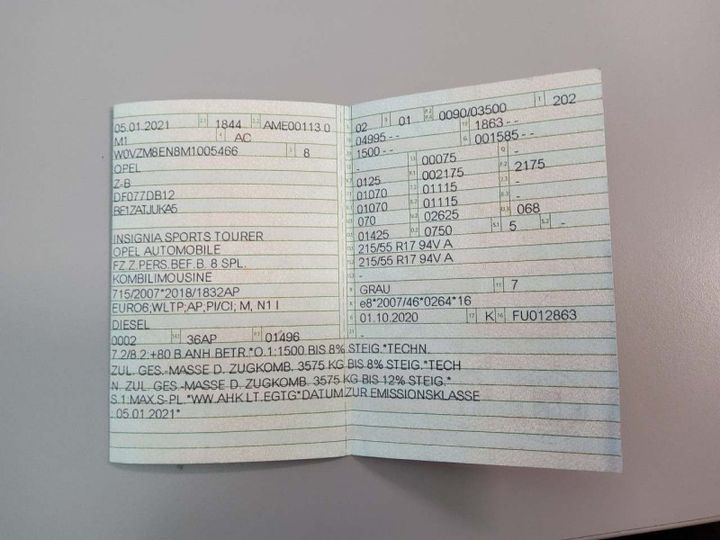 05.01.2021 1844 AME00113 0
M1 AC
W0VZM8EN8M1005466 8
OPEL
Z-B
DF077DB12
BE1ZATJUKA5
INSIGNIA SPORTS TOURER
OPEL AUTOMOBILE
FZ.Z.PERS.BEF.B. 8 SPL.
KOMBILIMOUSINE
715/2007*2018/1832AP
EURO6;WLTP;AP;PI/CI; M, N1 I
DIESEL
0002 36AP 01496
02 01 0090/03500 202
04995 - - 1863 - -
1500 - - 001585 - -
- 00075 -
0125 002175 2175
01070 01115 -
01070 01115 -
070 02625 068
01425 0750 5 -
215/55 R17 94V A
215/55 R17 94V A
-
-
GRAU 7
e8*2007/46*0264*16
01.10.2020 K FU012863
-
7.2/8.2:+80 B.ANH.BETR.*O.1:1500 BIS 8% STEIG.*TECHN.
ZUL. GES.-MASSE D. ZUGKOMB. 3575 KG BIS 8% STEIG.*TECH
N. ZUL. GES.-MASSE D. ZUGKOMB. 3575 KG BIS 12% STEIG.*
S.1:MAX.S-PL.*WW.AHK LT.EGTG*DATUM ZUR EMISSIONSKLASSE
: 05.01.2021*